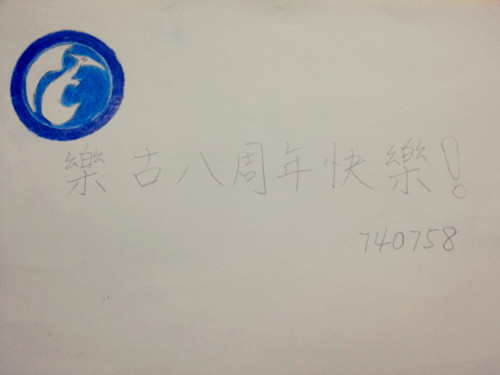 樂古八周年快樂！
740758